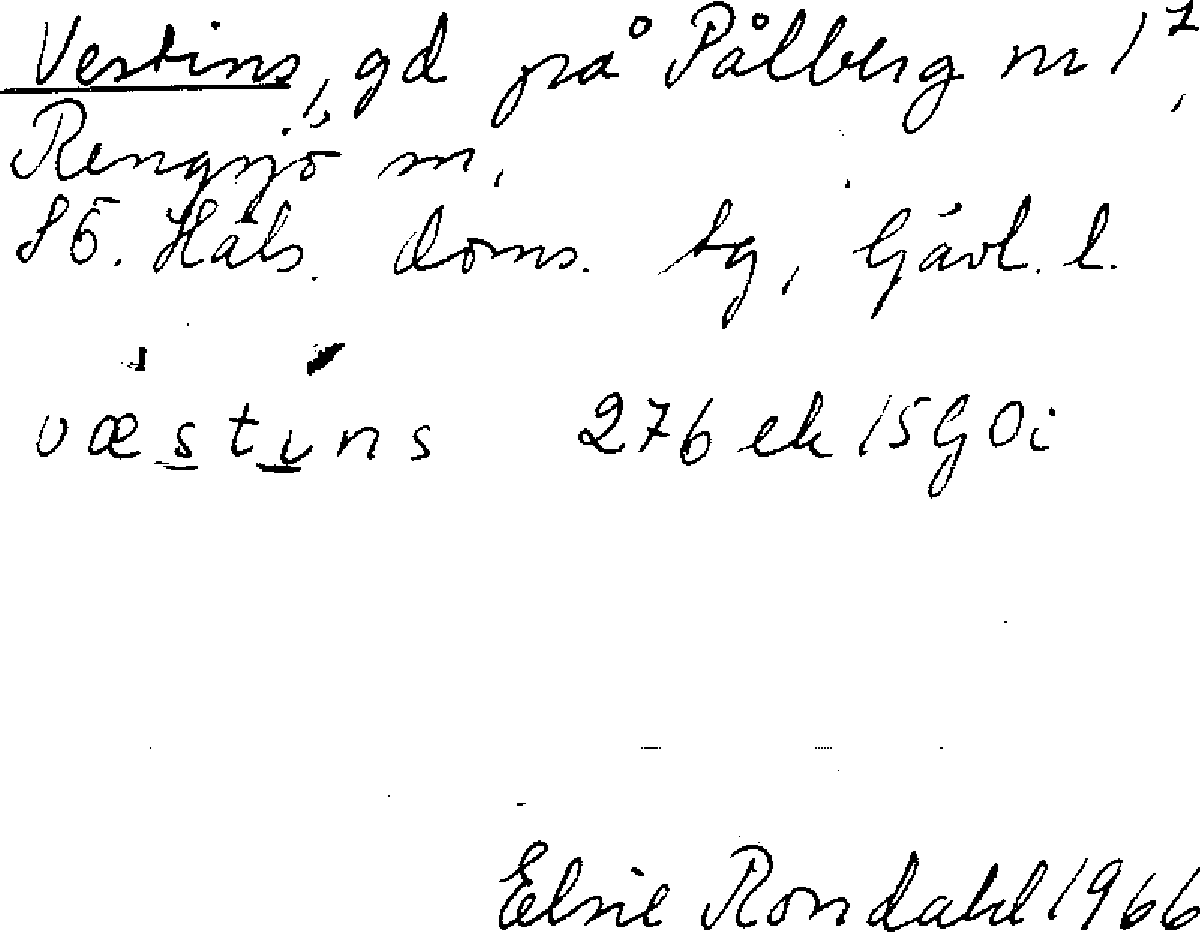 Vestins, gd på Pålberg nr 1⁷,
Rengsjö sn,
SÖ. Häls. doms. tg, Gävl. l.
væstıns 276 ek 15 G Oi
Elsie Rondahl 1966